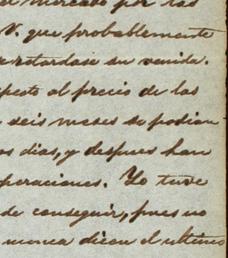 el mercado por las
V. que probablemente
retardase su venida.
pecto al precio de las
seis meses se podian
os dias, y despues han
peraciones. Yo tuve
de conseguir, pues no
nunca dicen el ultimo